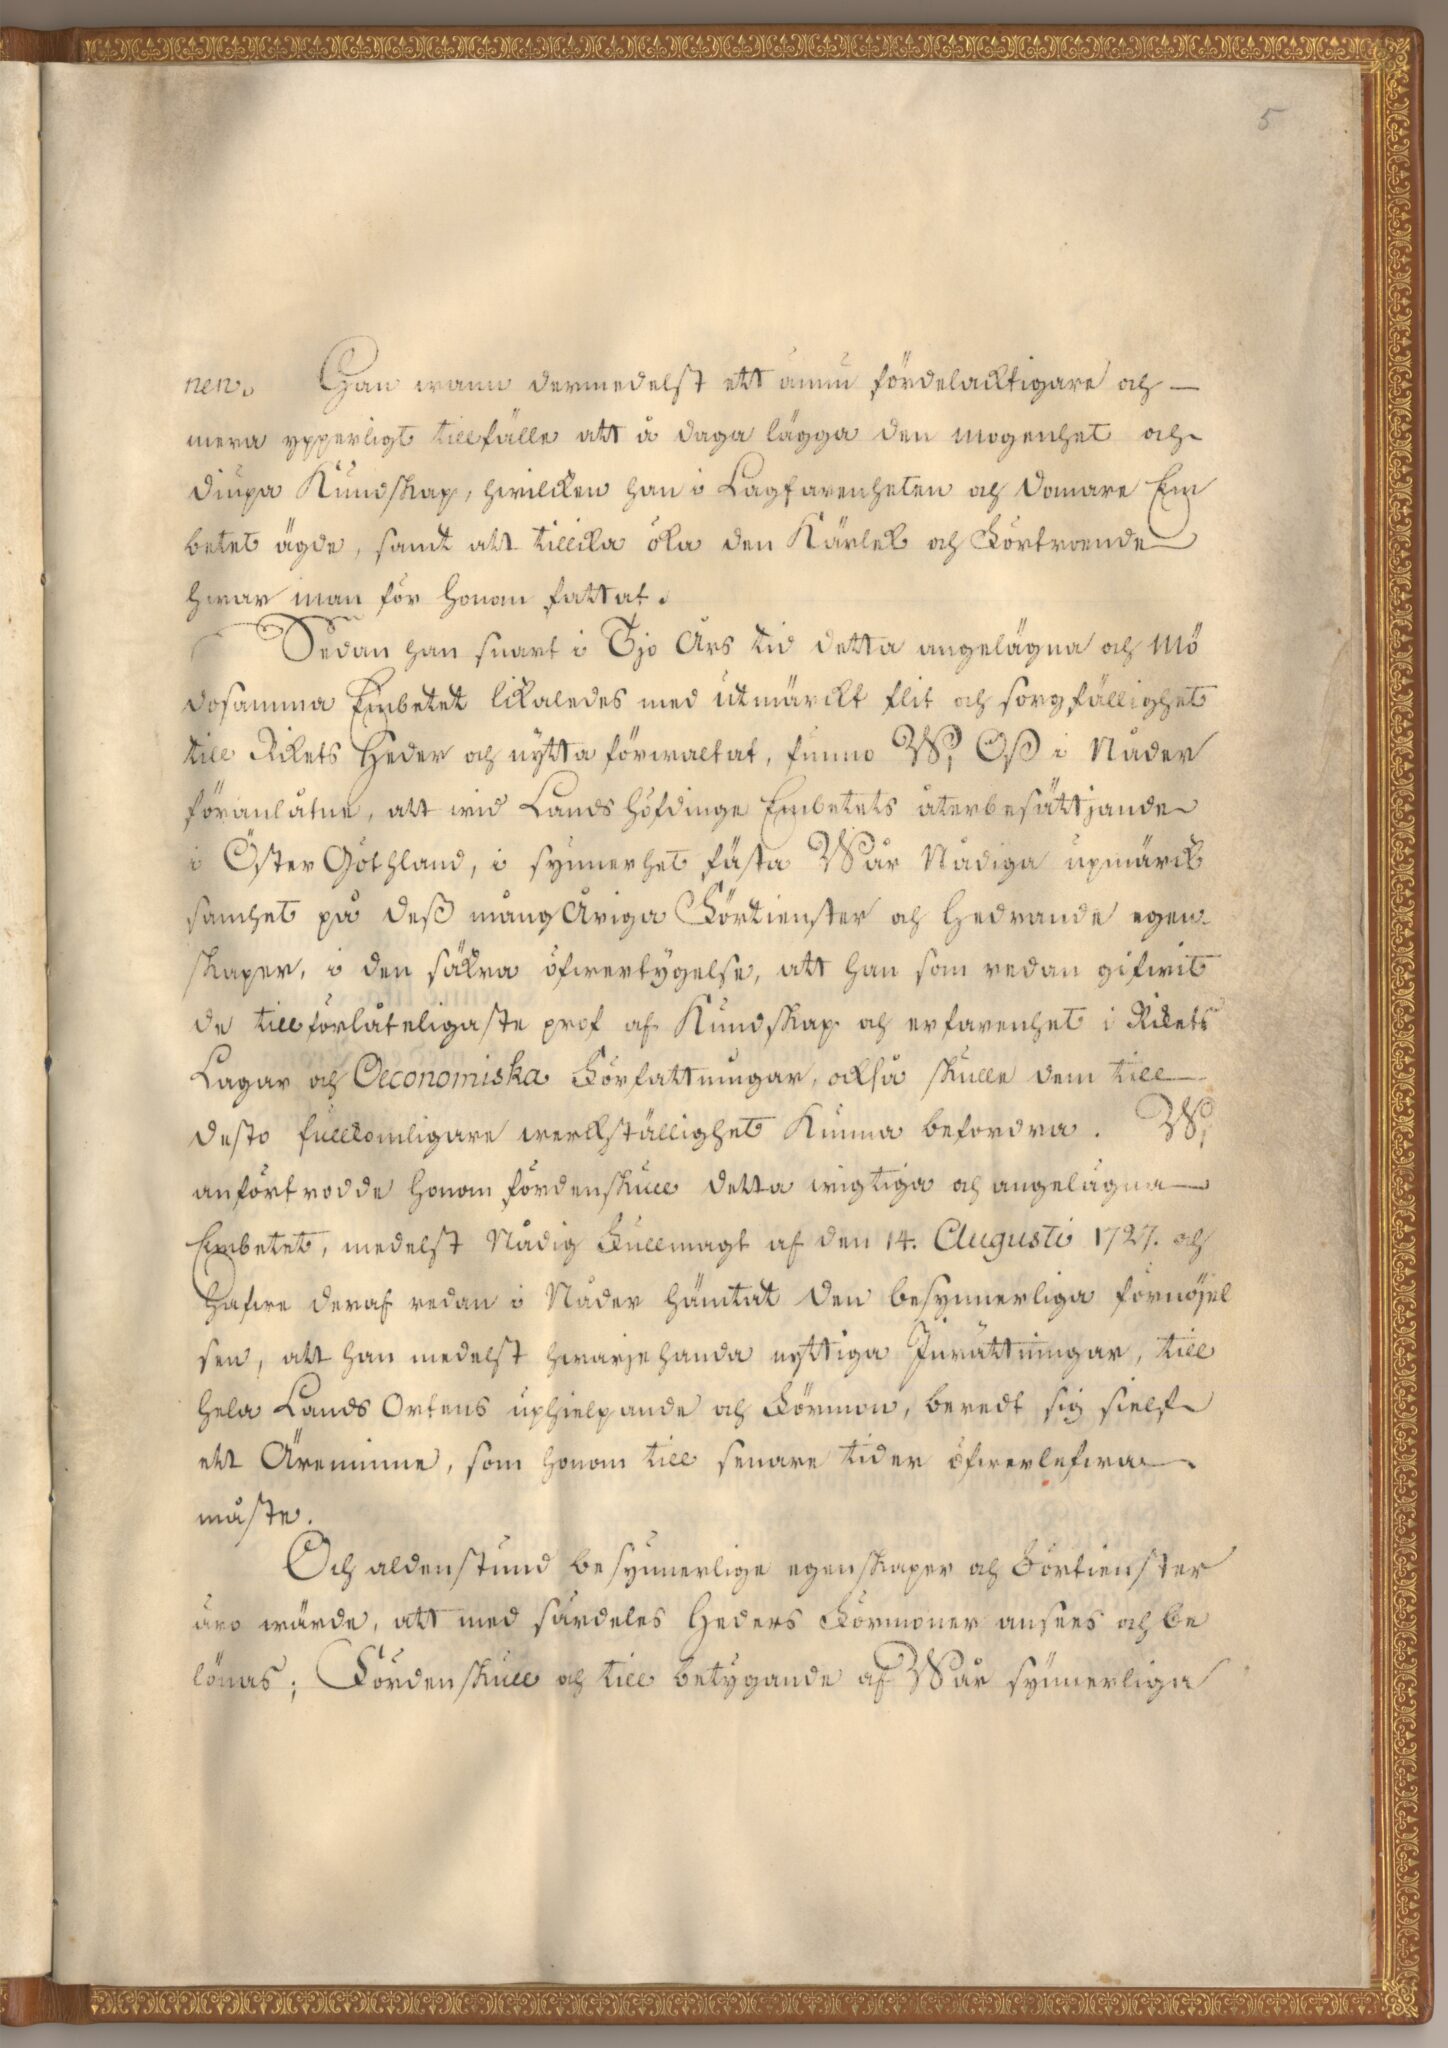 5
nen. Han wann dermedelst ett ännu fördelacktigare och
mera ypperligt tillfälle att å daga lägga den mogenhet och
diupa Kundskap, hwilcken han i Lagfarenheten och Domare Em
betet ägde, samt att tillika öka den Kärlek och Förtroende
hwar man för honom fattat.
Sedan han snart i Tjo Års tid detta angelägna och mö
dosamma Embetet likaledes med utmärckt flit och sorgfällighet
till Rikets Heder och nytta förwaltat, funno Wi Oß i Nåder
föranlåtne, att wid Lands Höfdinge Embetets återbesättjande
i Öster Göthland, i synnerhet fästa Wår Nådiga upmärck
samhet på deß mång Åriga Förtienster och Hedrande egen
skaper, i den säkra öfwertygelse, att han som redan gifwit
de tillförlåteligaste prof af Kundskap och erfarenhet i Rikets
Lagar och Oeconomiska Författningar, också skulle dem till
desto fullkomligare werckställighet kunna befordra. Wi
anförtrodde honom fördenskull detta wigtiga och angelägna
Embetet, medelst Nådig Fullmagt af den 14. Augusti 1727. och
hafwe deraf redan i Nåder hämtat den besynnerliga förnöjel
sen, att han medelst hwarjehanda nyttiga Inrättningar, till
hela Lands Ortens uphielpande och Förmon, beredt sig sielf
ett Äreminne, som honom till senare tider öfwerlefwa
måste.
Och aldenstund besynnerlige egenskaper och Förtienster
äro wärde, att med särdeles Heders Förmoner ansees och be
lönas; Fördenskull och till betygande af Wår synnerliga